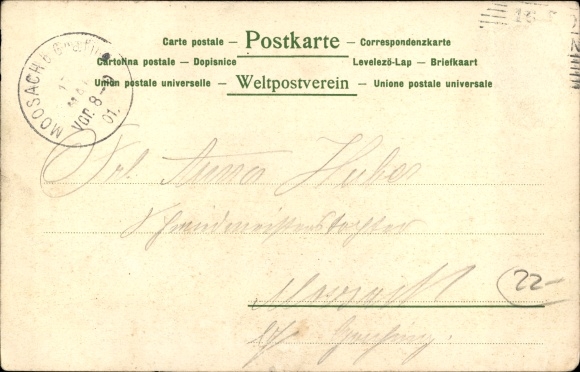 Carte postale – Postkarte – Correspondenzkarte
Cartolina postale – Dopisnice Levelező-Lap – Briefkaart
Union postale universelle – Weltpostverein – Unione postale universale
MOOSACH b. Grafing
17 MAI
Vor. 8-9
01.
Frl. Anna Huber
Schmiedmeisterstochter
Moosach
22-